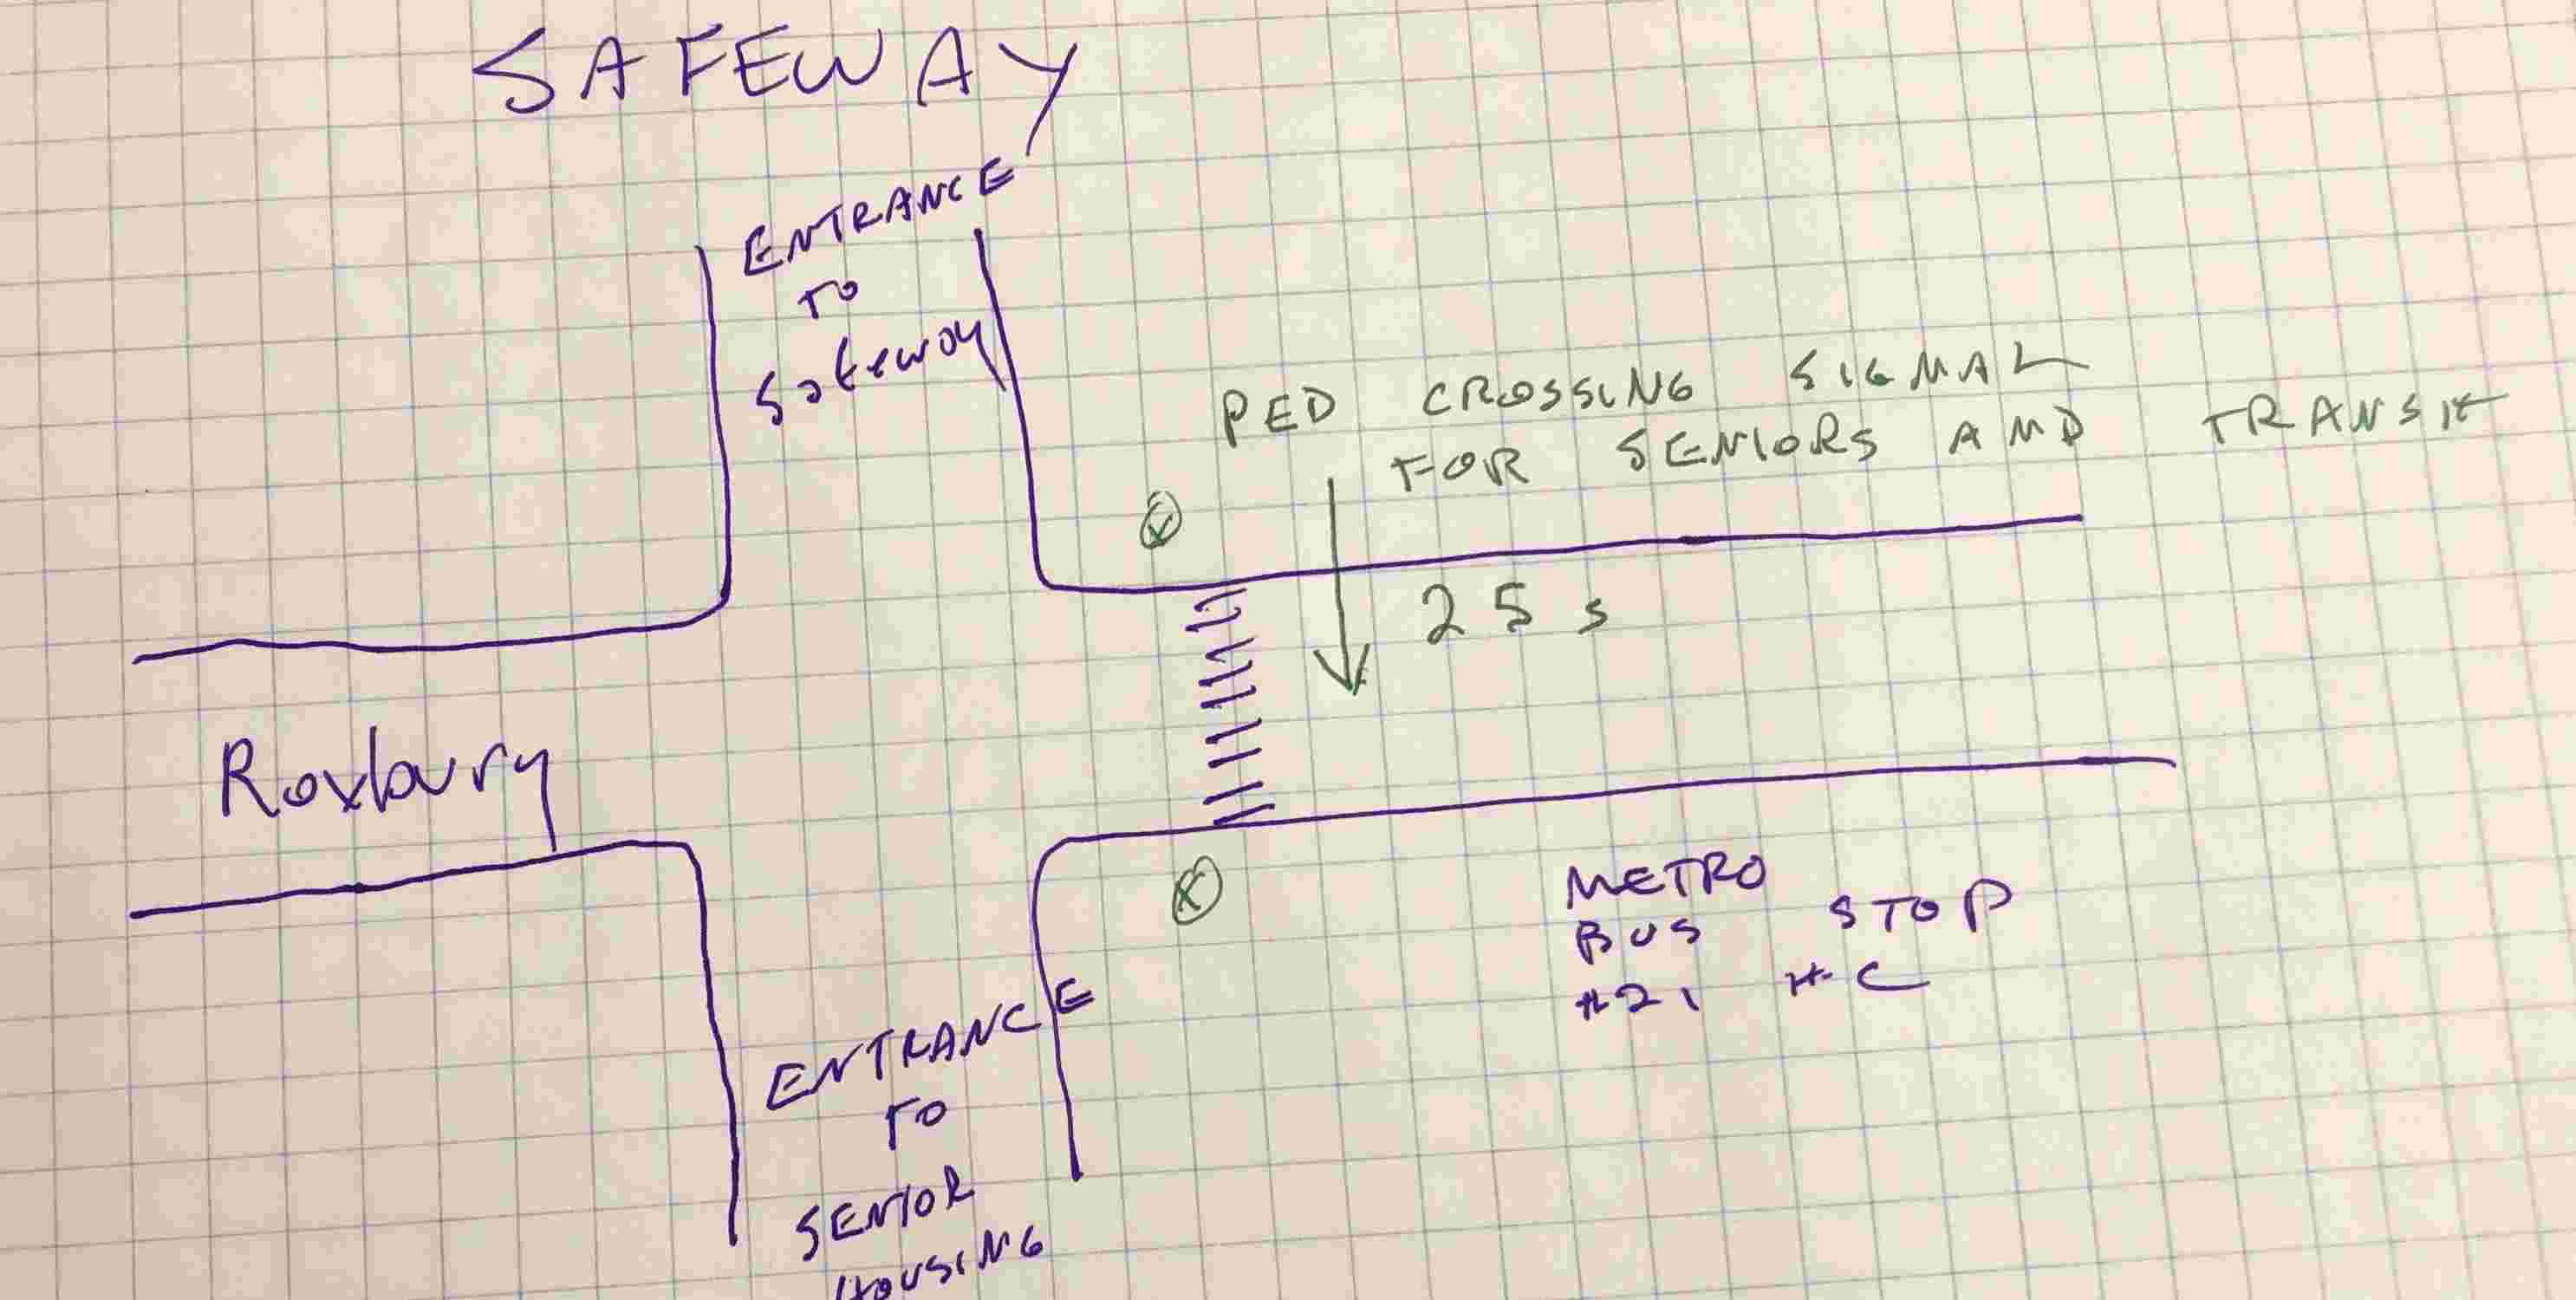 SAFEWAY
ENTRANCE
TO
Safeway
PED CROSSING SIGNAL
FOR SENIORS AND TRANSit
25 s
Roxbury
METRO
BUS STOP
#21 #C
ENTRANCE
TO
SENIOR
HOUSING